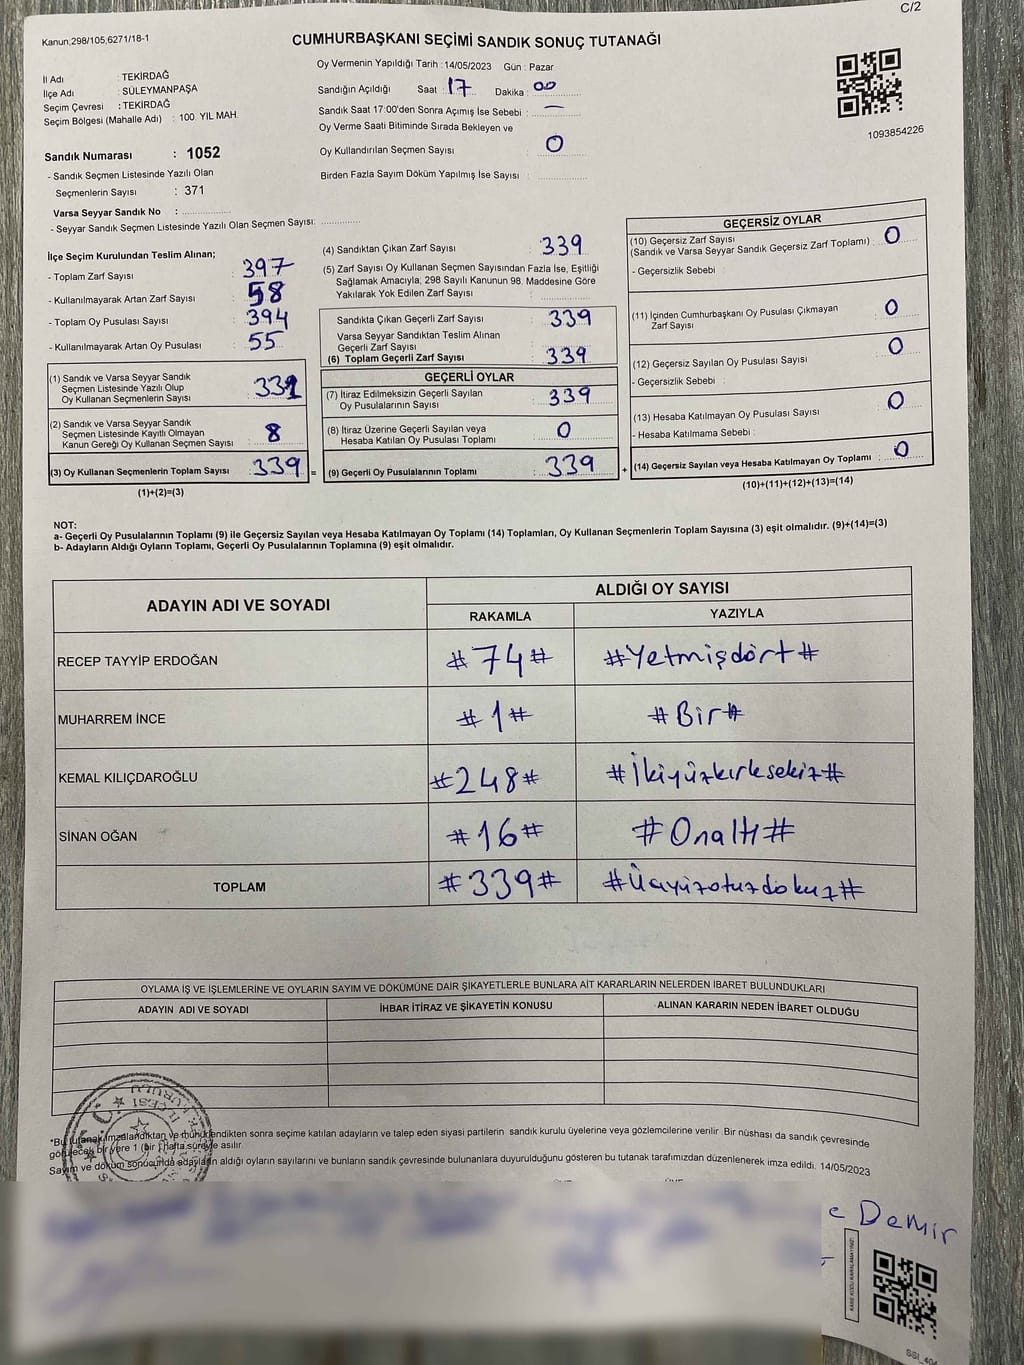 C/2
Kanun,298/105,6271/18-1
CUMHURBAŞKANI SEÇİMİ SANDIK SONUÇ TUTANAĞI
İl Adı : TEKİRDAĞ
İlçe Adı : SÜLEYMANPAŞA
Seçim Çevresi : TEKİRDAĞ
Seçim Bölgesi (Mahalle Adı) : 100. YIL MAH.
Oy Vermenin Yapıldığı Tarih :14/05/2023 Gün : Pazar
Sandığın Açıldığı Saat : 17 Dakika : 00
Sandık Saat 17:00'den Sonra Açımış İse Sebebi : —
Oy Verme Saati Bitiminde Sırada Bekleyen ve
Oy Kullandırılan Seçmen Sayısı : 0
Birden Fazla Sayım Döküm Yapılmış İse Sayısı :
1093854226
Sandık Numarası : 1052
- Sandık Seçmen Listesinde Yazılı Olan
Seçmenlerin Sayısı : 371
Varsa Seyyar Sandık No :
- Seyyar Sandık Seçmen Listesinde Yazılı Olan Seçmen Sayısı:
İlçe Seçim Kurulundan Teslim Alınan;
- Toplam Zarf Sayısı : 397
- Kullanılmayarak Artan Zarf Sayısı : 58
- Toplam Oy Pusulası Sayısı : 394
- Kullanılmayarak Artan Oy Pusulası : 55
(1) Sandık ve Varsa Seyyar Sandık
Seçmen Listesinde Yazılı Olup
Oy Kullanan Seçmenlerin Sayısı : 331
(2) Sandık ve Varsa Seyyar Sandık
Seçmen Listesinde Kayıtlı Olmayan
Kanun Gereği Oy Kullanan Seçmen Sayısı : 8
(3) Oy Kullanan Seçmenlerin Toplam Sayısı : 339 =
(1)+(2)=(3)
(4) Sandıktan Çıkan Zarf Sayısı : 339
(5) Zarf Sayısı Oy Kullanan Seçmen Sayısından Fazla İse, Eşitliği
Sağlamak Amacıyla; 298 Sayılı Kanunun 98. Maddesine Göre
Yakılarak Yok Edilen Zarf Sayısı :
Sandıkta Çıkan Geçerli Zarf Sayısı : 339
Varsa Seyyar Sandıktan Teslim Alınan
Geçerli Zarf Sayısı :
(6) Toplam Geçerli Zarf Sayısı : 339
GEÇERLİ OYLAR
(7) İtiraz Edilmeksizin Geçerli Sayılan
Oy Pusulalarının Sayısı : 339
(8) İtiraz Üzerine Geçerli Sayılan veya
Hesaba Katılan Oy Pusulası Toplamı : 0
(9) Geçerli Oy Pusulalarının Toplamı : 339 +
GEÇERSİZ OYLAR
(10) Geçersiz Zarf Sayısı : 0
(Sandık ve Varsa Seyyar Sandık Geçersiz Zarf Toplamı)
- Geçersizlik Sebebi :
(11) İçinden Cumhurbaşkanı Oy Pusulası Çıkmayan
Zarf Sayısı : 0
(12) Geçersiz Sayılan Oy Pusulası Sayısı : 0
- Geçersizlik Sebebi :
(13) Hesaba Katılmayan Oy Pusulası Sayısı : 0
- Hesaba Katılmama Sebebi :
(14) Geçersiz Sayılan veya Hesaba Katılmayan Oy Toplamı : 0
(10)+(11)+(12)+(13)=(14)
NOT:
a- Geçerli Oy Pusulalarının Toplamı (9) ile Geçersiz Sayılan veya Hesaba Katılmayan Oy Toplamı (14) Toplamları, Oy Kullanan Seçmenlerin Toplam Sayısına (3) eşit olmalıdır. (9)+(14)=(3)
b- Adayların Aldığı Oyların Toplamı, Geçerli Oy Pusulalarının Toplamına (9) eşit olmalıdır.
ADAYIN ADI VE SOYADI ALDIĞI OY SAYISI
RAKAMLA YAZIYLA
RECEP TAYYİP ERDOĞAN #74# #Yetmişdört#
MUHARREM İNCE #1# #Bir#
KEMAL KILIÇDAROĞLU #248# #İkiyüzkırksekiz#
SİNAN OĞAN #16# #Onaltı#
TOPLAM #339# #Üçyüzotuzdokuz#
OYLAMA İŞ VE İŞLEMLERİNE VE OYLARIN SAYIM VE DÖKÜMÜNE DAİR ŞİKAYETLERLE BUNLARA AİT KARARLARIN NELERDEN İBARET BULUNDUKLARI
ADAYIN ADI VE SOYADI İHBAR İTİRAZ VE ŞİKAYETİN KONUSU ALINAN KARARIN NEDEN İBARET OLDUĞU
*Bu tutanak imzalandıktan ve mühürlendikten sonra seçime katılan adayların ve talep eden siyasi partilerin sandık kurulu üyelerine veya gözlemcilerine verilir. Bir nüshası da sandık çevresinde
görülecek bir yere 1 (bir) hafta süreyle asılır.
Sayım ve döküm sonucunda adayların aldığı oyların sayılarını ve bunların sandık çevresinde bulunanlara duyurulduğunu gösteren bu tutanak tarafımızdan düzenlenerek imza edildi. 14/05/2023
e Demir
KARE KODU KARALAMAYINIZ!